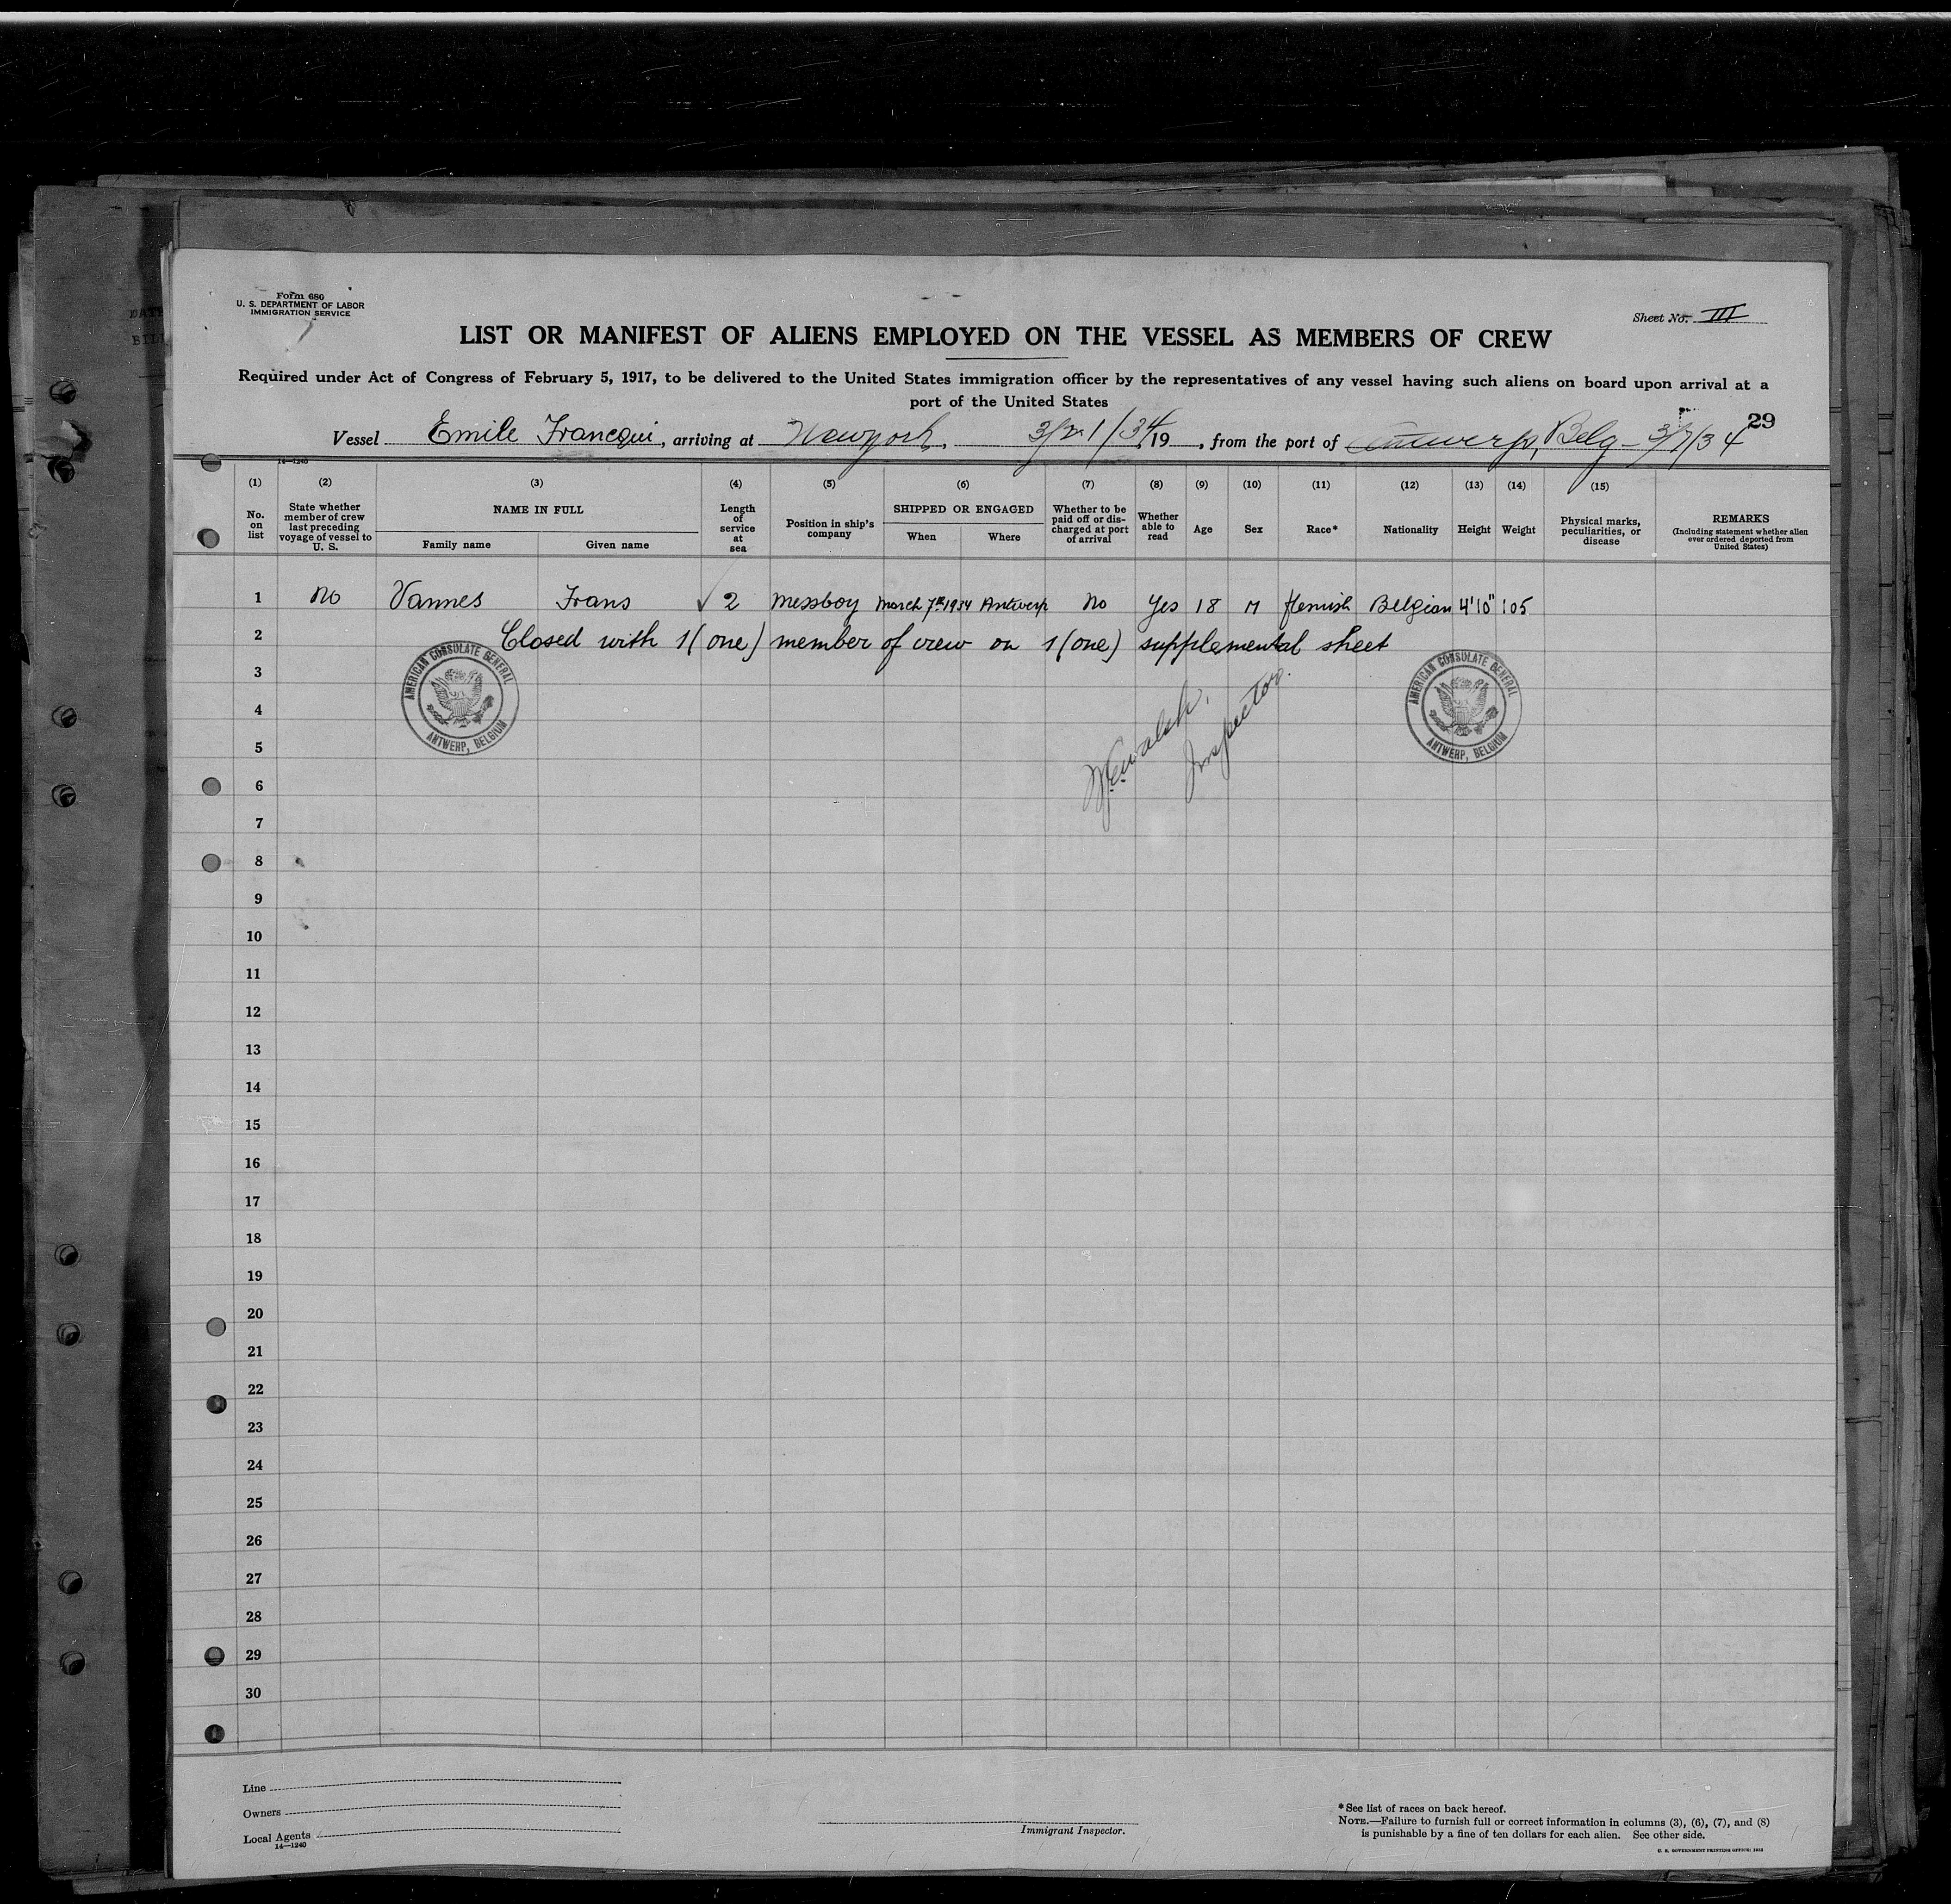 Form 680
U. S. DEPARTMENT OF LABOR
IMMIGRATION SERVICE
Sheet No. III
LIST OR MANIFEST OF ALIENS EMPLOYED ON THE VESSEL AS MEMBERS OF CREW
Required under Act of Congress of February 5, 1917, to be delivered to the United States immigration officer by the representatives of any vessel having such aliens on board upon arrival at a
port of the United States
29
Vessel Emile Francqui, arriving at Newyork, 3/21/34 19, from the port of Antwerp, Belg - 3/7/34
14—1240
(1) (2) (3) (4) (5) (6) (7) (8) (9) (10) (11) (12) (13) (14) (15)
No. on list
State whether member of crew last preceding voyage of vessel to U. S.
NAME IN FULL
Family name
Given name
Length of service at sea
Position in ship's company
SHIPPED OR ENGAGED
When
Where
Whether to be paid off or discharged at port of arrival
Whether able to read
Age
Sex
Race*
Nationality
Height
Weight
Physical marks, peculiarities, or disease
REMARKS
(Including statement whether alien ever ordered deported from United States)
1 No Vannes Frans √ 2 messboy March 7th 1934 Antwerp No Yes 18 M flemish Belgian 4'10" 105
2 Closed with 1 (one) member of crew on 1 (one) supplemental sheet
3
AMERICAN CONSULATE GENERAL
ANTWERP, BELGIUM
AMERICAN CONSULATE GENERAL
ANTWERP, BELGIUM
Walsh,
Inspector.
4
5
6
7
8
9
10
11
12
13
14
15
16
17
18
19
20
21
22
23
24
25
26
27
28
29
30
Line
Owners
Local Agents
14—1240
Immigrant Inspector.
*See list of races on back hereof.
NOTE.—Failure to furnish full or correct information in columns (3), (6), (7), and (8)
is punishable by a fine of ten dollars for each alien. See other side.